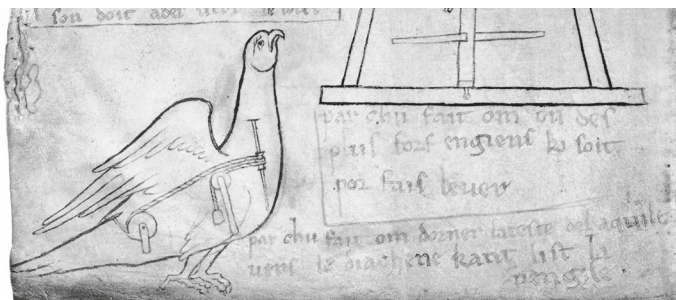 son doit ades vers le
par chu fait om un des
plus fors engiens ki soit
por fais lever
par chu fait om dorner lateste del aquile
vers le diachene kant list la
vengile